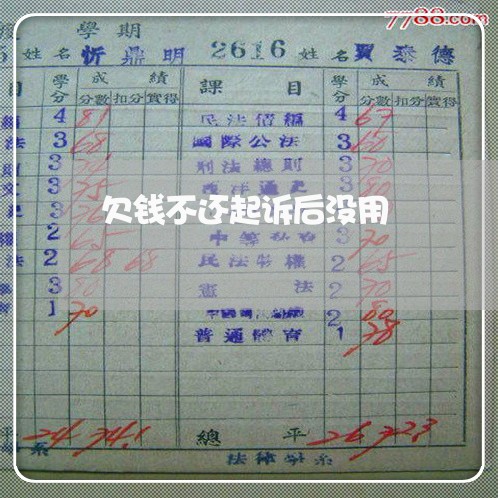 7788.com
學期
5 姓名 忻鼎明 2616 姓名 賈泰德
目 學分 成績 課目 學分 成績
分數 扣分 實得 分數 扣分 實得
4 81 民法債編 4 67
法 3 68 國際公法 3 60
3 刑法總則 3 70
3 75 西洋通史 3 80
3 3 70
2 65 民法物權 2 65
法 2 68 68 憲法 2 70
3 80 2 80
1 70 普通體育 1 78
欠钱不还起诉后没用
平 24 74.1 總平 26 72.3
系 法律學系